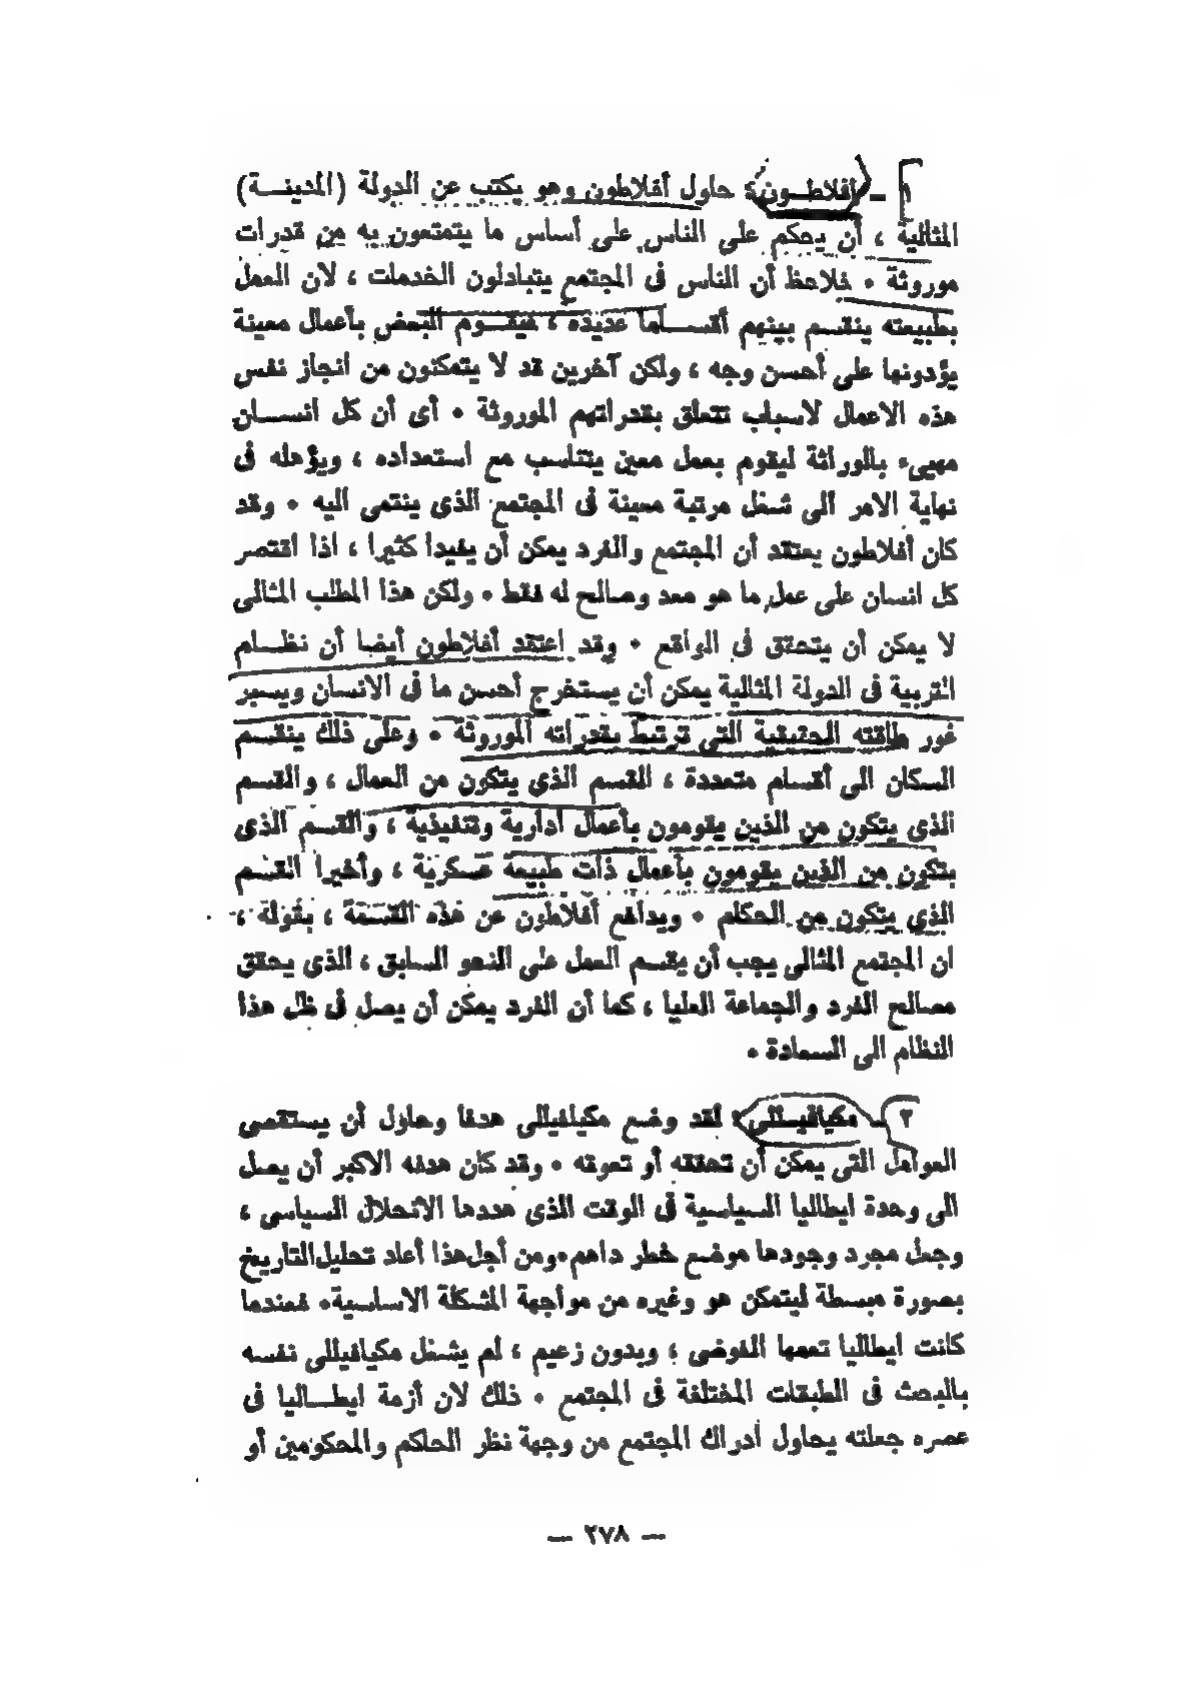 ١ ــ أفلاطــون : حاول أفلاطون وهو يكتب عن الدولة (المدينـــة)
المثالية ، أن يحكم على الناس على أساس ما يتمتعون به من قدرات
موروثة ٠ فلاحظ أن الناس فى المجتمع يتبادلون الخدمات ، لان العمل
بطبيعته ينقسم بينهم أقســـاما عديدة ، فيقــوم البعض بأعمال معينة
يؤدونها على أحسن وجه ، ولكن آخرين قد لا يتمكنون من انجاز نفس
هذه الاعمال لاسباب تتعلق بقدراتهم الموروثة ٠ أى أن كل انســـان
مهيىء بالوراثة ليقوم بعمل معين يتناسب مع استعداده ، ويؤهله فى
نهاية الامر الى شغل مرتبة معينة فى المجتمع الذى ينتمى اليه ٠ وقد
كان أفلاطون يعتقد أن المجتمع والفرد يمكن أن يفيدا كثيرا ، اذا اقتصر
كل انسان على عمل ما هو معد وصالح له فقط ٠ ولكن هذا المطلب المثالى
لا يمكن أن يتحقق فى الواقع ٠ وقد اعتقد أفلاطون أيضا أن نظــام
التربية فى الدولة المثالية يمكن أن يستخرج أحسن ما فى الانسان ويسبر
غور طاقته الحقيقية التى ترتبط بقدراته الموروثة ٠ وعلى ذلك ينقسم
السكان الى أقسام متعددة ، القسم الذى يتكون من العمال ، والقسم
الذى يتكون من الذين يقومون بأعمال ادارية وتنفيذية ، والقسم الذى
يتكون من الذين يقومون بأعمال ذات طبيعة عسكرية ، وأخيرا القسم
الذى يتكون من الحكام ٠ ويدافع أفلاطون عن هذه القسمة ، بقوله ،
ان المجتمع المثالى يجب أن يقسم العمل على النحو السابق ، الذى يحقق
مصالح الفرد والجماعة العليا ، كما أن الفرد يمكن أن يصل فى ظل هذا
النظام الى السعادة ٠
٢ ــ مكيافيللى : لقد وضع مكيافيللى هدفا وحاول أن يستقصى
العوامل التى يمكن أن تحققه أو تعوقه ٠ وقد كان هدفه الاكبر أن يصل
الى وحدة ايطاليا السياسية فى الوقت الذى هددها الانحلال السياسى ،
وجعل مجرد وجودها موضع خطر داهم٠ومن أجل هذا أعاد تحليل التاريخ
بصورة مبسطة ليتمكن هو وغيره من مواجهة المشكلة الاساسية٠ فعندما
كانت ايطاليا تعمها الفوضى ؛ وبدون زعيم ، لم يشغل مكيافيللى نفسه
بالبحث فى الطبقات المختلفة فى المجتمع ٠ ذلك لان أزمة ايطــاليا فى
عصره جعلته يحاول ادراك المجتمع من وجهة نظر الحاكم والمحكومين أو
ـــ ٢٧٨ ـــ